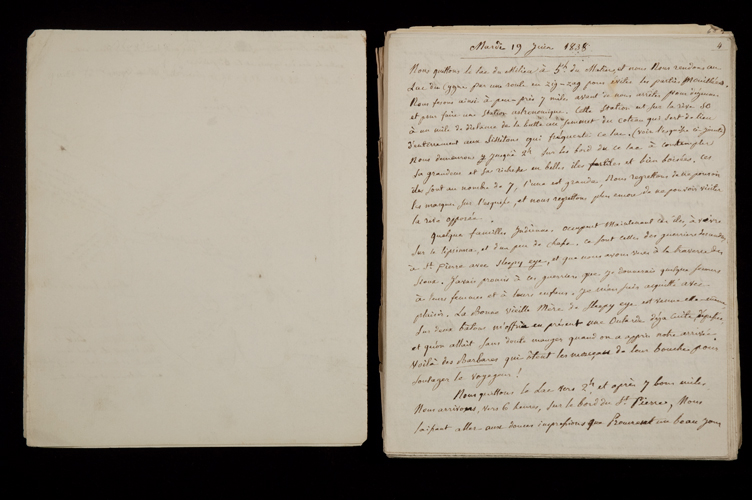 Mardi 19 Juin 1838
4
Nous quittons le lac du Milieu à 5h du Matin, et nous nous rendons au
Lac du Cygne par une route en zig-zag pour éviter les parties
Nous ferons ainsi à peu-près 7 miles avant de nous arrêter pour déjeuner
et pour faire une station astronomique. Cette station est sur la rive SO
à un mile de distance de la butte au sommet du coteau qui sert de lieu
d'enterrement aux Sissitons qui fréquente ce lac. (voir l'esquisse ci-jointe)
Nous demeurons jusqu'à 2h sur les bord du ce lac à contempler
sa grandeur et sa richesse en belles îles fertiles et bien boisées, ces
îles sont au nombre de 7, l'une est grande, Nous regrettons de ne pouvoir
les marquer sur l'esquisse, et nous regrettons plus encore de ne pouvoir visiter
la rive opposée.
Quelque familles Indiennes occupent Maintenant ces îles, à vivre
sur le tipsinna, et d'un peu de chasse, ce sont celles des guerriers descendus
à St Pierre avec Sleepy eye, et que nous avons vus à la traverse des
Sioux. J'avais promis à ces guerriers que je donnerais quelque
à leurs femmes et à leurs enfans. Je m'en suis acquitté avec
plaisir. La Bonne vieille Mère de Sleepy eye est venue elle-même
sur deux bâtons m'offrir en présent une Outarde déjà cuite,
et qu'on allait sans doute manger quand on a appris notre arrivée.
Voilà des Barbares qui ôtent les morceaux de leur bouches pour
soulager le voyageur!
Nous quittons le Lac vers 2h et après 7 bons miles
Nous arrivons, vers 6 heures, sur le bord du St Pierre, Nous
laissant aller aux douces impressions que Procurent un beau jour